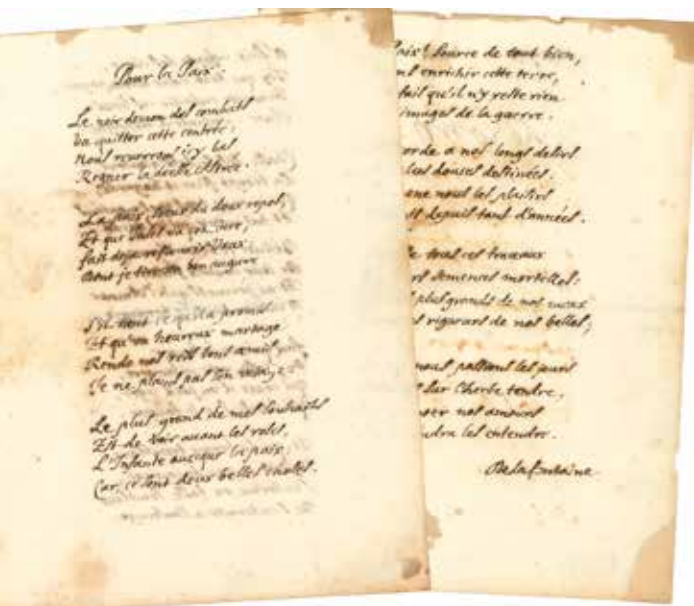 Pour la Paix.
Le noir demon des combats
Va quitter cette contrée;
Nous reverrons icy bas
Regner la déesse Astrée.
La paix sœur du doux repos,
Et que Jules va conclure,
fait deja refleurir Vaux
Dont je tire un bon augure
S'il tient ce qu'il a promis
Et qu'un heureux mariage
Rende nos rois bons amis
Je ne plains pas son voyage
Le plus grand de mes souhaits
Est de voir avant les roses,
L'Infante avecque la paix;
Car ce sont deux belles choses.
Paix! source de tout bien,
enrichir cette terre,
fait qu'il n'y reste rien
images de la guerre.
a nos longs desirs
les douces destinées.
nous les plaisirs
depuis tant d'années.
tous ces travaux
semences mortelles:
plus grands de nos maux
rigueurs de nos belles;
nous passions les jours
sur l'herbe tendre,
nos amours
les entendre.
De la fontaine